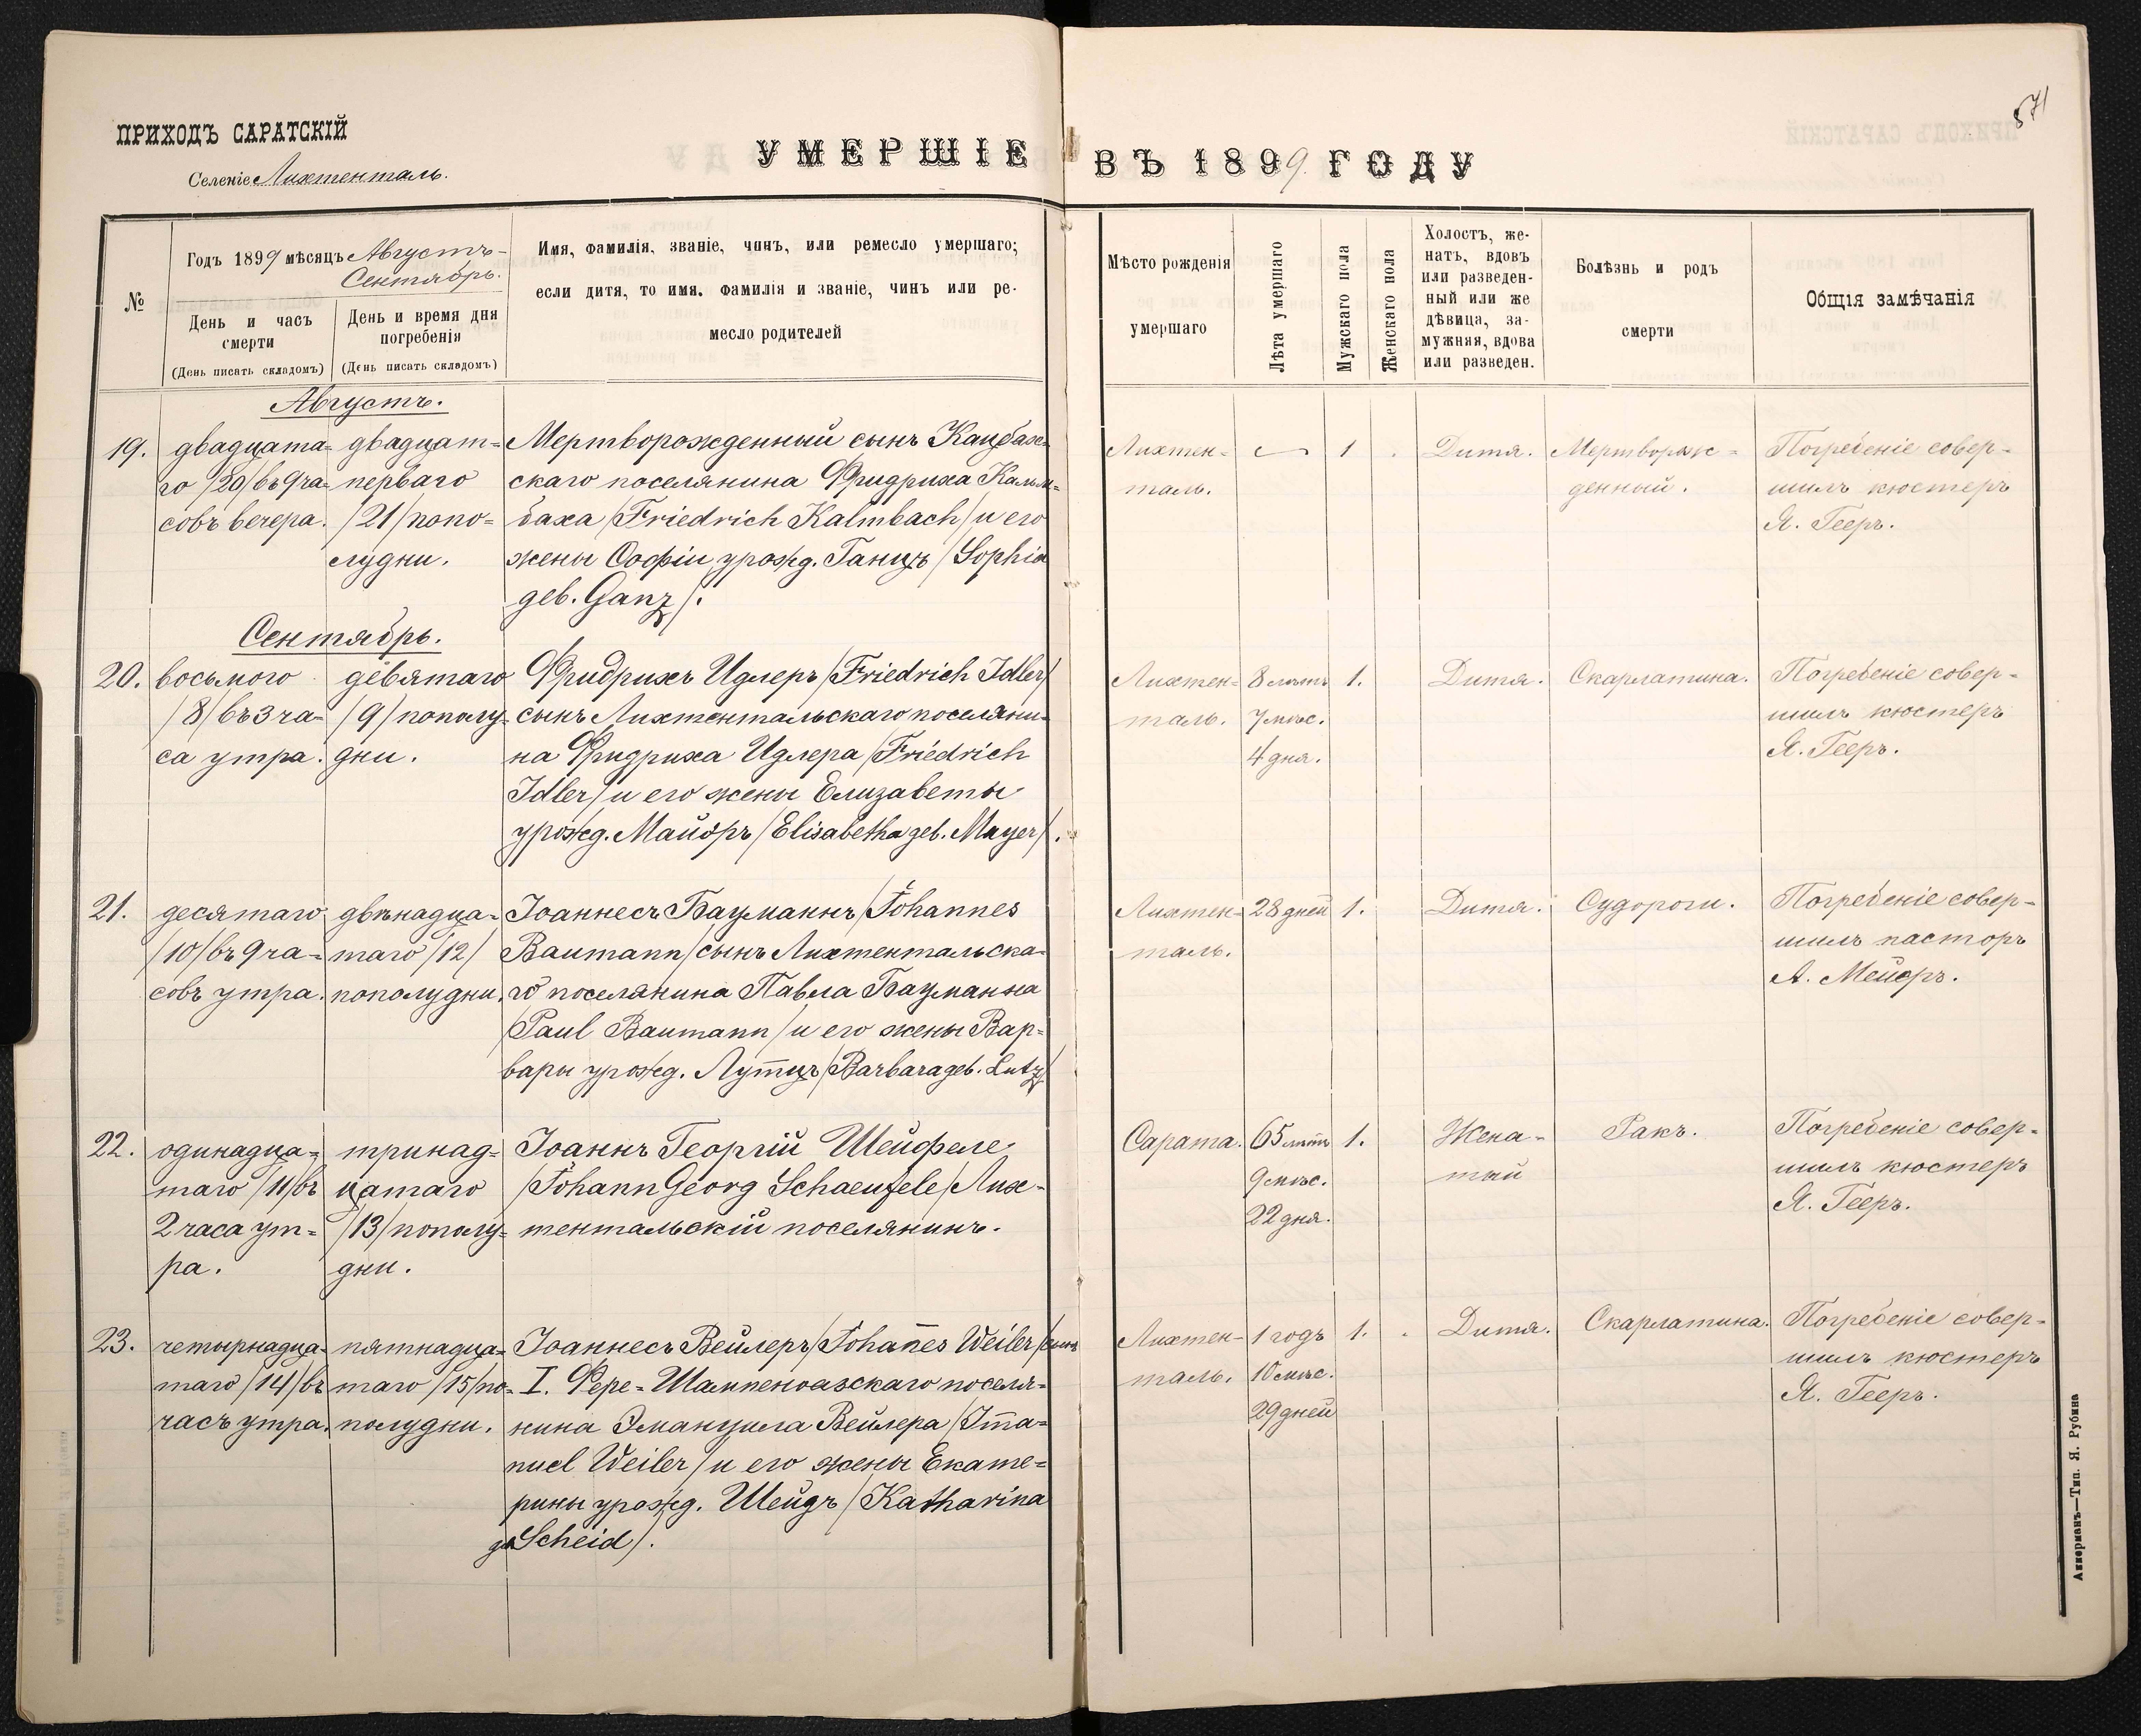 571
ПРИХОДЪ САРАТСКІЙ
Селеніе Лихтенталь.
УМЕРШІЕ ВЪ 1899 ГОДУ
№
Годъ 1899 мѣсяцъ Августъ-
Сентябрь.
День и часъ
смерти
(День писать складомъ)
День и время дня
погребенія
(День писать складомъ)
Имя, фамилія, званіе, чинъ, или ремесло умершаго;
если дитя, то имя, фамилія и званіе, чинъ или ре-
месло родителей
Мѣсто рожденія
умершаго
Лѣта умершаго
Мужскаго пола
Женскаго пола
Холостъ, же-
натъ, вдовъ
или разведен-
ный или же
дѣвица, за-
мужняя, вдова
или разведен.
Болѣзнь и родъ
смерти
Общія замѣчанія
Августъ.
19.
двадцата-
го /20/ въ 9 ча-
совъ вечера.
двадцать-
перваго
/21/ попо-
лудни.
Мертворожденный сынъ Каубах-
скаго поселянина Фридриха Кальм-
баха /Friedrich Kalmbach/ и его
жены Софіи урожд. Ганцъ /Sophia
geb. Ganz/.
Лихтен-
таль.
1
Дитя.
Мертворож-
денный.
Погребеніе совер-
шилъ кюстеръ
Я. Гееръ.
Сентябрь.
20.
восьмого
/8/ въ 3 ча-
са утра.
девятаго
/9/ пополу-
дни.
Фридрихъ Идлеръ /Friedrich Idler/
сынъ Лихтентальскаго поселяни-
на Фридриха Идлера /Friedrich
Idler/ и его жены Елизаветы
урожд. Майоръ /Elisabetha geb. Mayer/.
Лихтен-
таль.
8 лѣтъ
7 мѣс.
4 дня.
1.
Дитя.
Скарлатина.
Погребеніе совер-
шилъ кюстеръ
Я. Гееръ.
21.
десятаго
/10/ въ 9 ча-
совъ утра.
двѣнадца-
таго /12/
пополудни.
Іоаннесъ Бауманнъ /Johannes
Baumann/ сынъ Лихтентальска-
го поселянина Павла Бауманна
/Paul Baumann/ и его жены Вар-
вары урожд. Лутцъ /Barbara geb. Lutz/
Лихтен-
таль.
28 дней
1.
Дитя.
Судороги.
Погребеніе совер-
шилъ пасторъ
А. Мейеръ.
22.
одинадца-
таго /11/ въ
2 часа ут-
ра.
тринад-
цатаго
/13/ пополу-
дни.
Іоаннъ Георгій Шейфеле
/Johann Georg Schaeufele/ Лих-
тентальскій поселянинъ.
Сарата.
65 лѣтъ
9 мѣс.
22 дня.
1.
Жена-
тый
Ракъ.
Погребеніе совер-
шилъ кюстеръ
Я. Гееръ.
23.
четырнадца-
таго /14/ въ
часъ утра.
пятнадца-
таго /15/ по-
полудни.
Іоаннесъ Вейлеръ /Johan̅es Weiler/ сынъ
I. Фере-Шампенуазскаго поселя-
нина Эмануила Вейлера /Im̅a-
nuel Weiler/ и его жены Екате-
рины урожд. Шейдъ /Katharina
gb Scheid/.
Лихтен-
таль.
1 годъ
10 мѣс.
29 дней
1.
Дитя.
Скарлатина.
Погребеніе совер-
шилъ кюстеръ
Я. Гееръ.
Аккерманъ—Тип. Я. Рубина